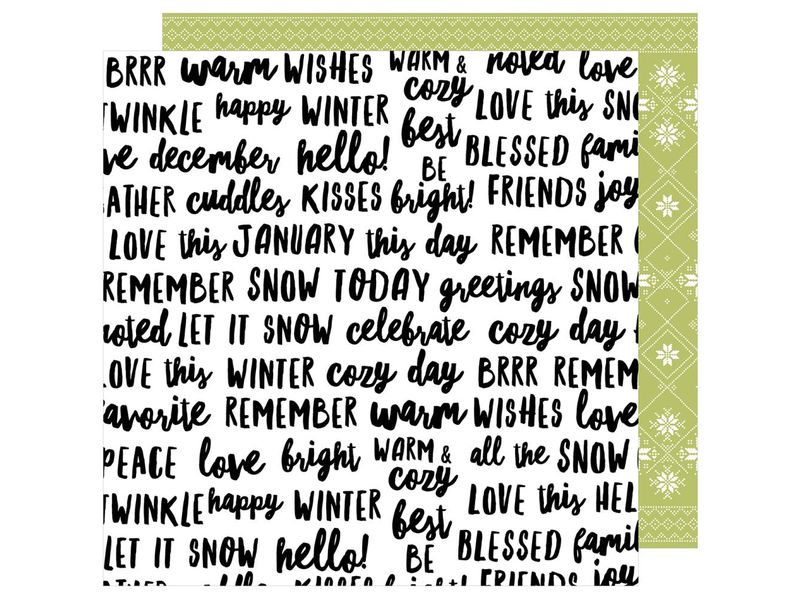 BRRR warm WISHES WARM & cozy noted love
TWINKLE happy WINTER best LOVE this SNO
ve december hello! BE BLESSED fami
ATHER cuddles KISSES bright! FRIENDS joy
LOVE this JANUARY this day REMEMBER
REMEMBER SNOW TODAY greetings SNOW
noted LET IT SNOW celebrate cozy day
LOVE this WINTER cozy day BRRR REMEM
favorite REMEMBER warm WISHES love
PEACE love bright WARM & cozy all the SNOW
TWINKLE happy WINTER best LOVE this HEL
LET IT SNOW hello! BE BLESSED famil
ATHER cuddles KISSES bright! FRIENDS joy